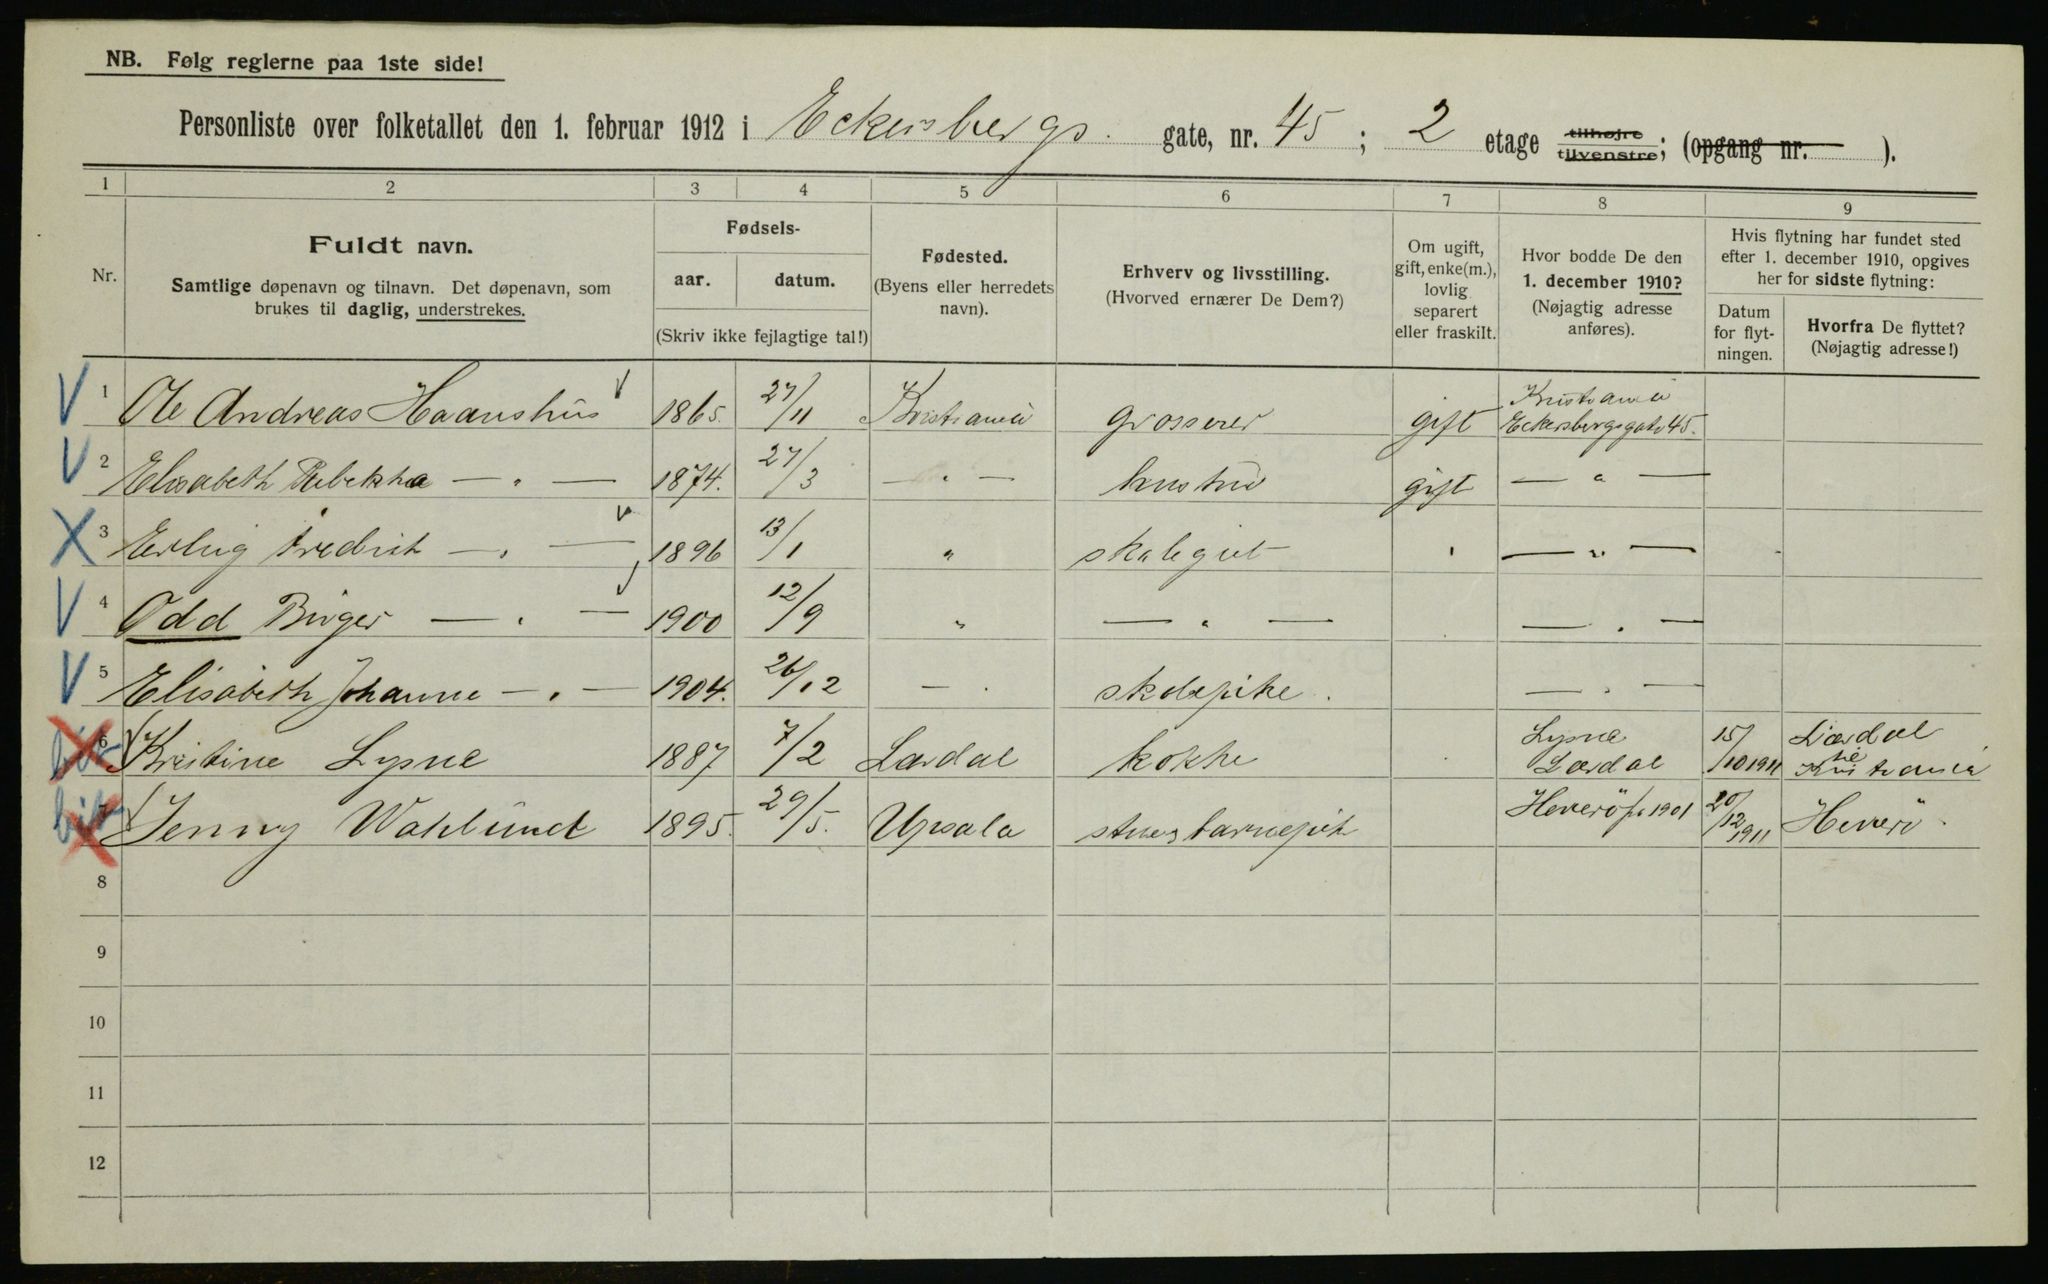 NB. Følg reglerne paa 1ste side!
Personliste over folketallet den 1. februar 1912 i Eckersbergs gate, nr. 45; 2 etage tilhøjre tilvenstre; (opgang nr. ).
1 2 3 4 5 6 7 8 9
Nr.
Fuldt navn.
Samtlige døpenavn og tilnavn. Det døpenavn, som
brukes til daglig, understrekes.
Fødsels-
aar. datum.
(Skriv ikke fejlagtige tal!)
Fødested.
(Byens eller herredets
navn).
Erhverv og livsstilling.
(Hvorved ernærer De Dem?)
Om ugift,
gift, enke(m.),
lovlig
separert
eller fraskilt.
Hvor bodde De den
1. december 1910?
(Nøjagtig adresse
anføres).
Hvis flytning har fundet sted
efter 1. december 1910, opgives
her for sidste flytning:
Datum
for flyt-
ningen.
Hvorfra De flyttet?
(Nøjagtig adresse!)
1 Ole Andreas Haanshus 1865. 27/11 Kristiania grosserer gift Kristiania
Eckersbergsgate 45.
2 Elisabeth Rebekka — „ — 1874. 27/3 — „ — hustru gift — „ —
3 Erling Fredrik — „ — 1896 13/1 „ skolegut — „ —
4 Odd Birger — „ — 1900 12/9 „ — „ — — „ —
5 Elisabeth Johanne — „ — 1904. 26/12 — „ skolepike. — „ —
6 Kristine Lysne 1887 7/2 Lærdal kokke Lysne
Lærdal 15/10 1911 Lærdal
til
Kristiania
7 Jenny Wahlund 1895. 29/5. Upsala stue & barnepik 20/12 1911
8
9
10
11
12